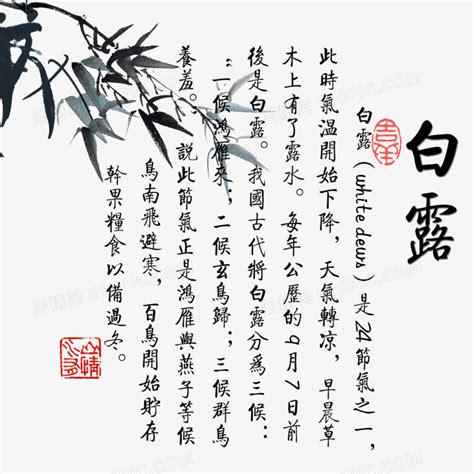 白露
白露(white dews)是24節氣之一,
此時氣溫開始下降,天氣轉凉,早晨草
木上有了露水。每年公歷的9月7日前
後是白露。我國古代將白露分爲三候:
“一候鴻雁來;二候玄鳥歸;三候群鳥
養羞。”說此節氣正是鴻雁與燕子等候
鳥南飛避寒,百鳥開始貯存
幹果糧食以備過冬。